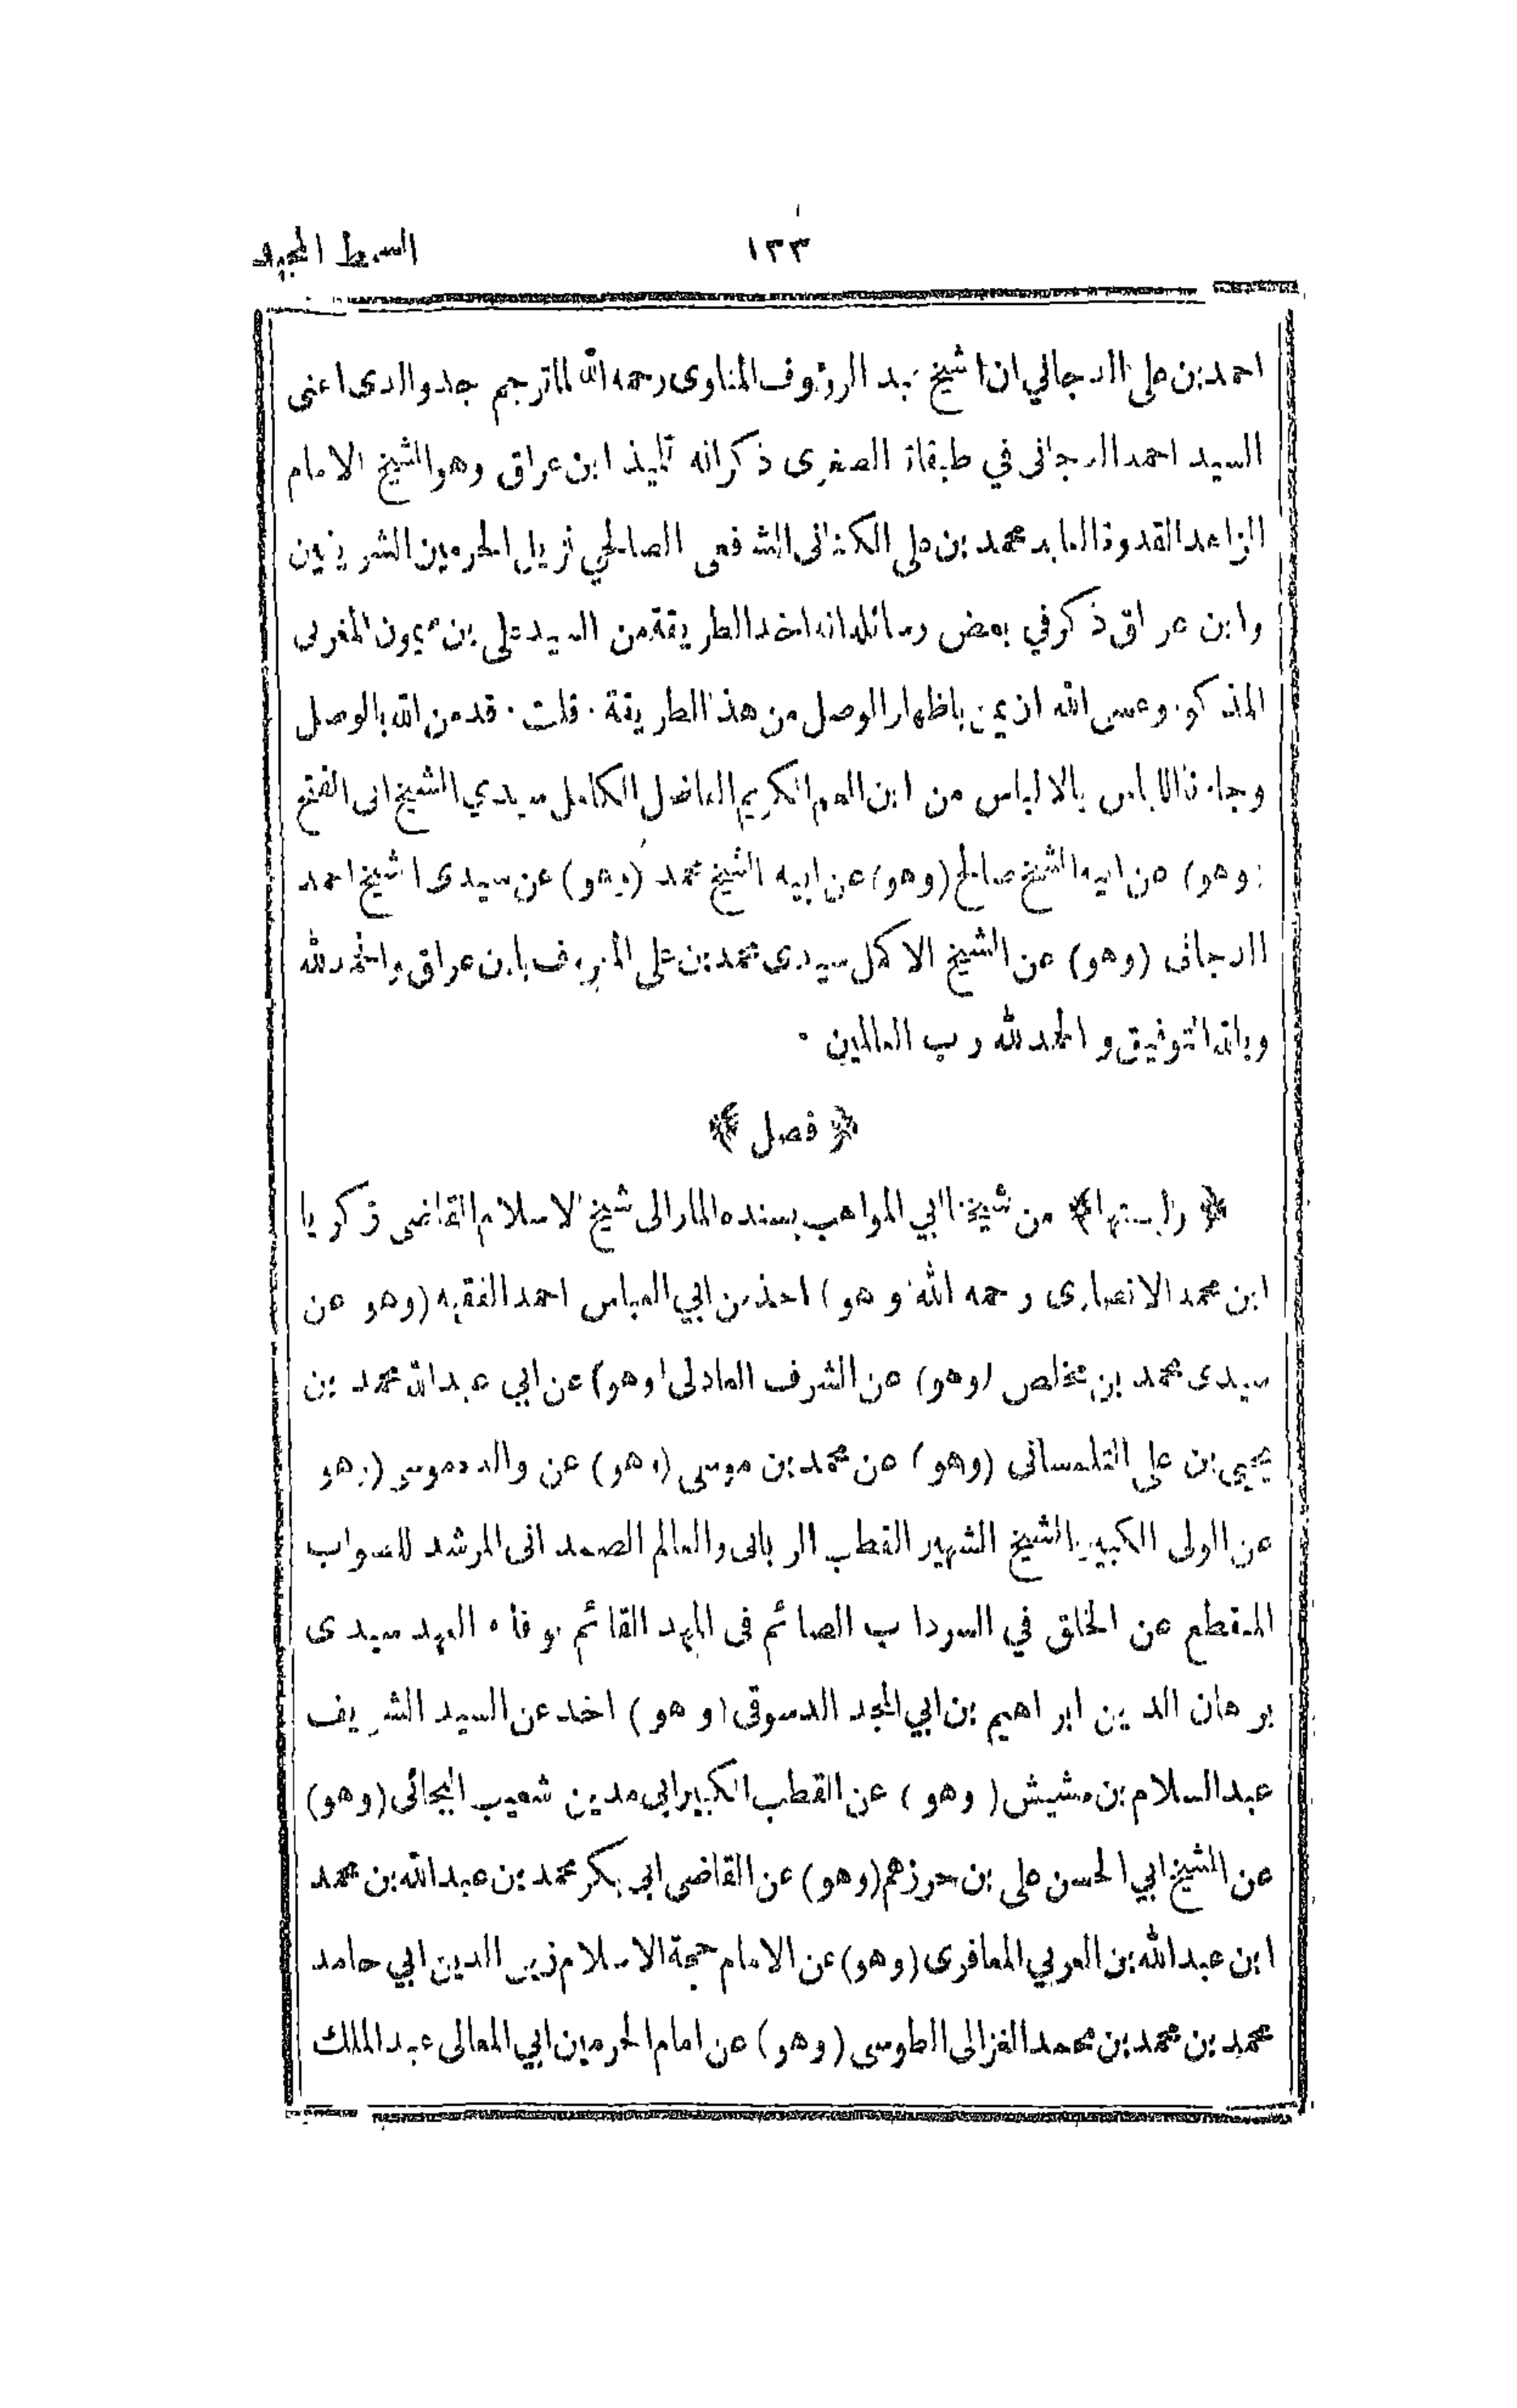 ١٣٣
السمط المجيد
احمد بن على الدجاني ان الشيخ عبد الرؤوف المناوى رحمه الله لما ترجم جد والدى اعنى
السيد احمد الدجانى في طبقاته الصغرى ذكر انه تلميذ ابن عراق وهو الشيخ الامام
الزاهد القدوة العابد محمد بن على الكنانى الشافعى الصالحي نزيل الحرمين الشريفين
وابن عراق ذكر في بعض رسائله انه اخذ الطريقة من السيد على بن ميمون المغربى
المذكور وعسى الله ان يمن باظهار الوصل من هذه الطريقة · قلت · قد من الله بالوصل
وجاءنا الالباس بالالباس من ابن العم الكريم الفاضل الكامل سيدي الشيخ ابى الفتح
(وهو) عن ابيه الشيخ صالح (وهو) عن ابيه الشيخ محمد (وهو) عن سيدى الشيخ احمد
الدجانى (وهو) عن الشيخ الاكمل سيدى محمد بن على المعروف بابن عراق والحمد لله
وبالله التوفيق و الحمد لله رب العالمين ·
﴿ فصل ﴾
﴿ رابستها ﴾ من شيخنا ابي المواهب بسنده المار الى شيخ الاسلام القاضى زكريا
ابن محمد الانصارى رحمه الله (وهو) اخذ من ابي العباس احمد الفقيه (وهو عن
سيدى محمد بن مخلص (وهو) عن الشرف العادلى (وهو) عن ابي عبد الله محمد بن
يحيى بن على التلمسانى (وهو) عن محمد بن موسى (وهو) عن والده موسى (وهو
عن الولى الكبير الشيخ الشهير القطب الربانى والعالم الصمدانى المرشد للصواب
المنقطع عن الخلق في السرداب الصائم فى المهد القائم بوفاء العهد سيدى
برهان الدين ابراهيم بن ابي المجد الدسوقى (وهو) اخذ عن السيد الشريف
عبد السلام بن مشيش (وهو) عن القطب الكبير ابى مدين شعيب البجائى (وهو)
عن الشيخ ابي الحسن على بن حرزهم (وهو) عن القاضى ابى بكر محمد بن عبد الله بن محمد
ابن عبد الله بن العربي المعافرى (وهو) عن الامام حجة الاسلام زين الدين ابي حامد
محمد بن محمد بن محمد الغزالى الطوسى (وهو) عن امام الحرمين ابي المعالى عبد الملك